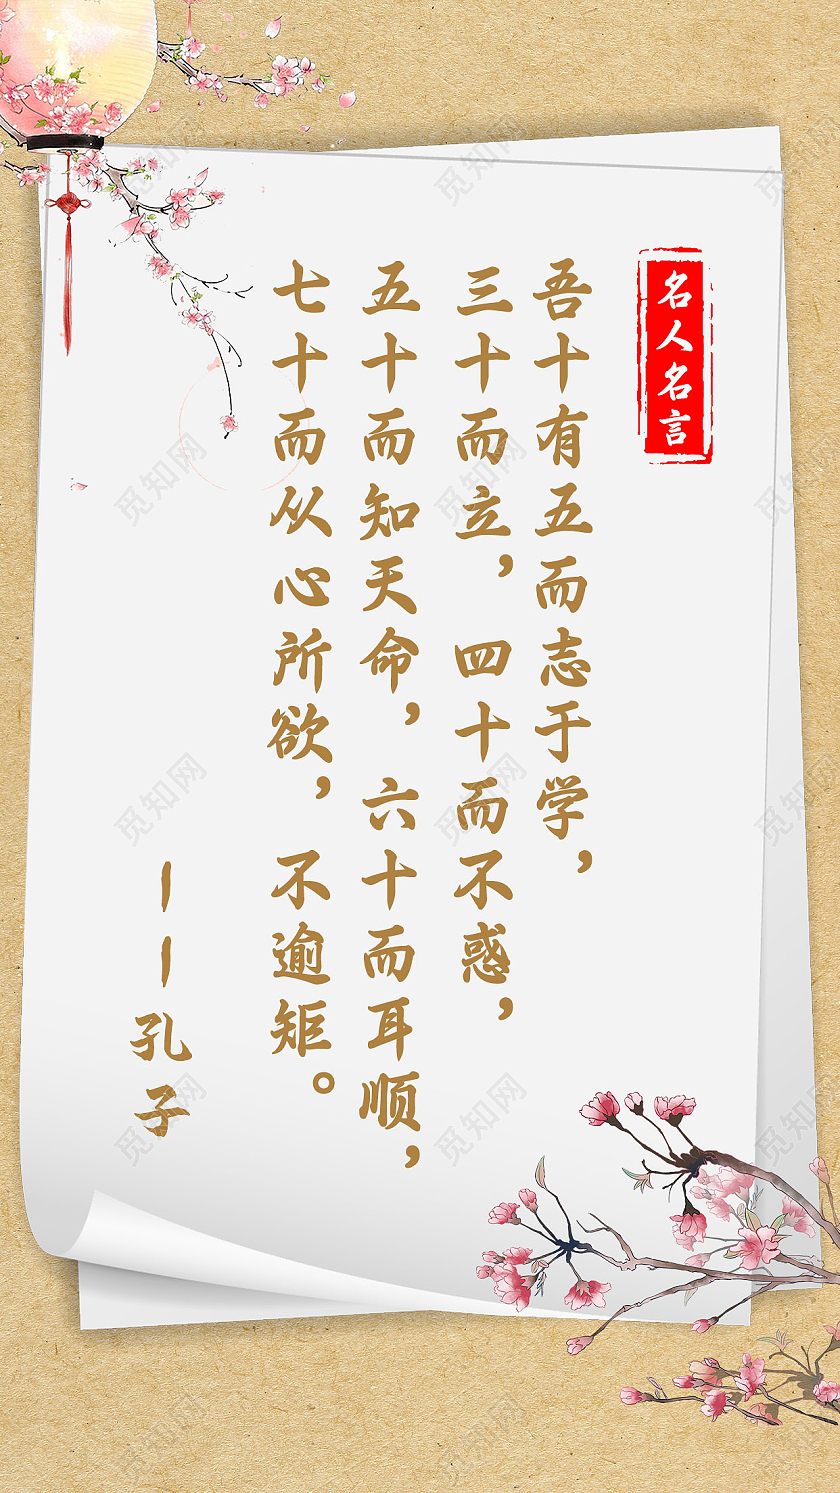 名人名言
吾十有五而志于学，
三十而立，四十而不惑，
五十而知天命，六十而耳顺，
七十而从心所欲，不逾矩。
——孔子
觅知网